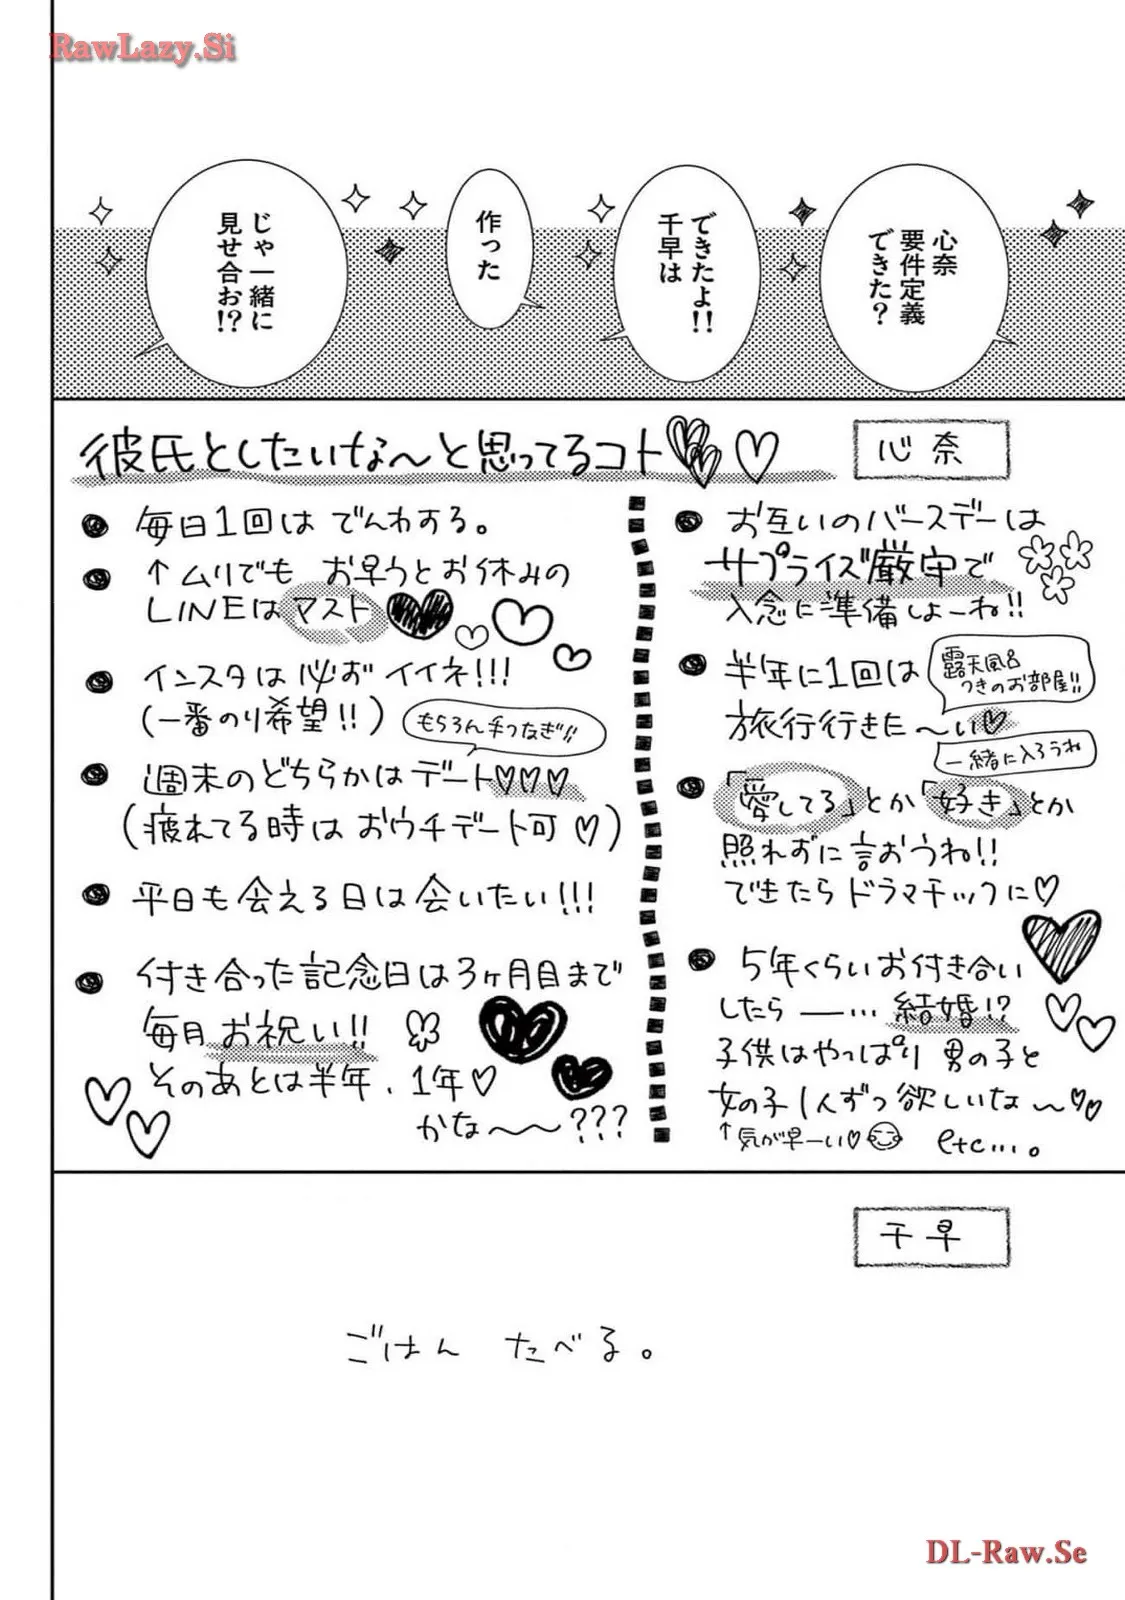 RawLazy.Si
心奈
要件定義
できた?
できたよ!!
千早は
作った
じゃ一緒に
見せ合お!?
心奈
彼氏としたいな〜と思ってるコト
毎日1回は でんわする。
↑ムリでも お早うとお休みの
LINEはマスト
インスタは必おイイネ!!!
(一番のり希望!!)
もちろん手つなぎ!!
週末のどちらかはデート♡♡♡
(疲れてる時は おウチデート可♡)
平日も会える日は会いたい!!!
付き合った記念日は3ヶ月目まで
毎月お祝い!!
そのあとは半年、1年♡
かな〜〜???
お互いのバースデーは
サプライズ厳守で
入念に準備しよーね!!
半年に1回は
露天風呂
つきのお部屋!!
旅行行きた〜い♡
一緒に入ろうね
「愛してる」とか「好き」とか
照れずに言おうね!!
できたらドラマチックに♡
5年くらいお付き合い
したら ―…結婚!?
子供はやっぱり 男の子と
女の子1人ずつ欲しいな〜♡♡
↑気が早ーい♡
etc…。
千早
ごはん たべる。
DL-Raw.Se